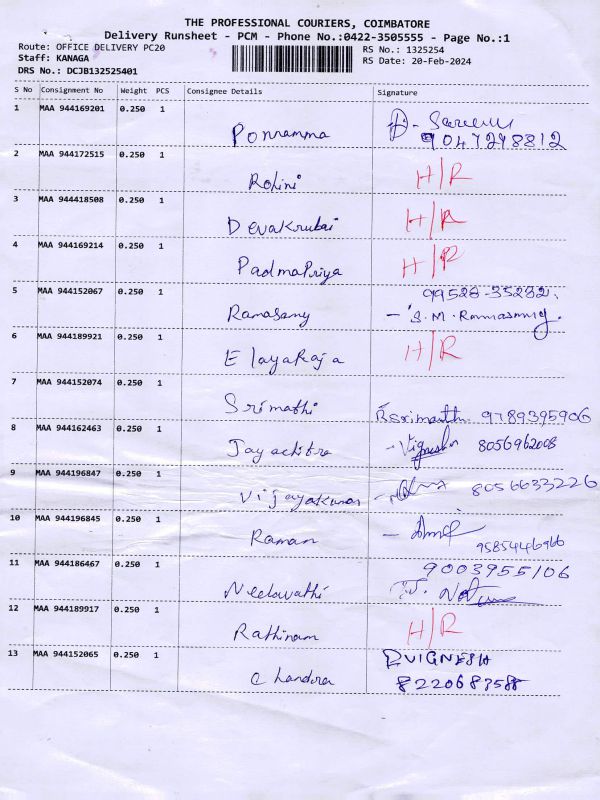 THE PROFESSIONAL COURIERS, COIMBATORE
Delivery Runsheet - PCM - Phone No.:0422-3505555 - Page No.:1
Route: OFFICE DELIVERY PC20
RS No.: 1325254
Staff: KANAGA
RS Date: 20-Feb-2024
DRS No.: DCJB132525401
S No Consignment No Weight PCS Consignee Details Signature
1 MAA 944169201 0.250 1
Ponramma 9047248812
2 MAA 944172515 0.250 1
Rolini H/R
3 MAA 944418508 0.250 1
Devakrubai H/R
4 MAA 944169214 0.250 1
PadmaPriya H/R
5 MAA 944152067 0.250 1 99528-35282.
Ramasamy - S.M. Ramasamy.
6 MAA 944189921 0.250 1
Elayaraja H/R
7 MAA 944152074 0.250 1
Srimathi R Srimathi 9789395906
8 MAA 944162463 0.250 1
Jayachitra - Vignesh 8056962008
9 MAA 944196847 0.250 1
Vijayakumar - 8056633226
10 MAA 944196845 0.250 1
Raman - 9585446966
11 MAA 944186467 0.250 1 9003955106
Neelavathi
12 MAA 944189917 0.250 1
Rathinam H/R
13 MAA 944152065 0.250 1 R VIGNESH
Chandra 8220683588